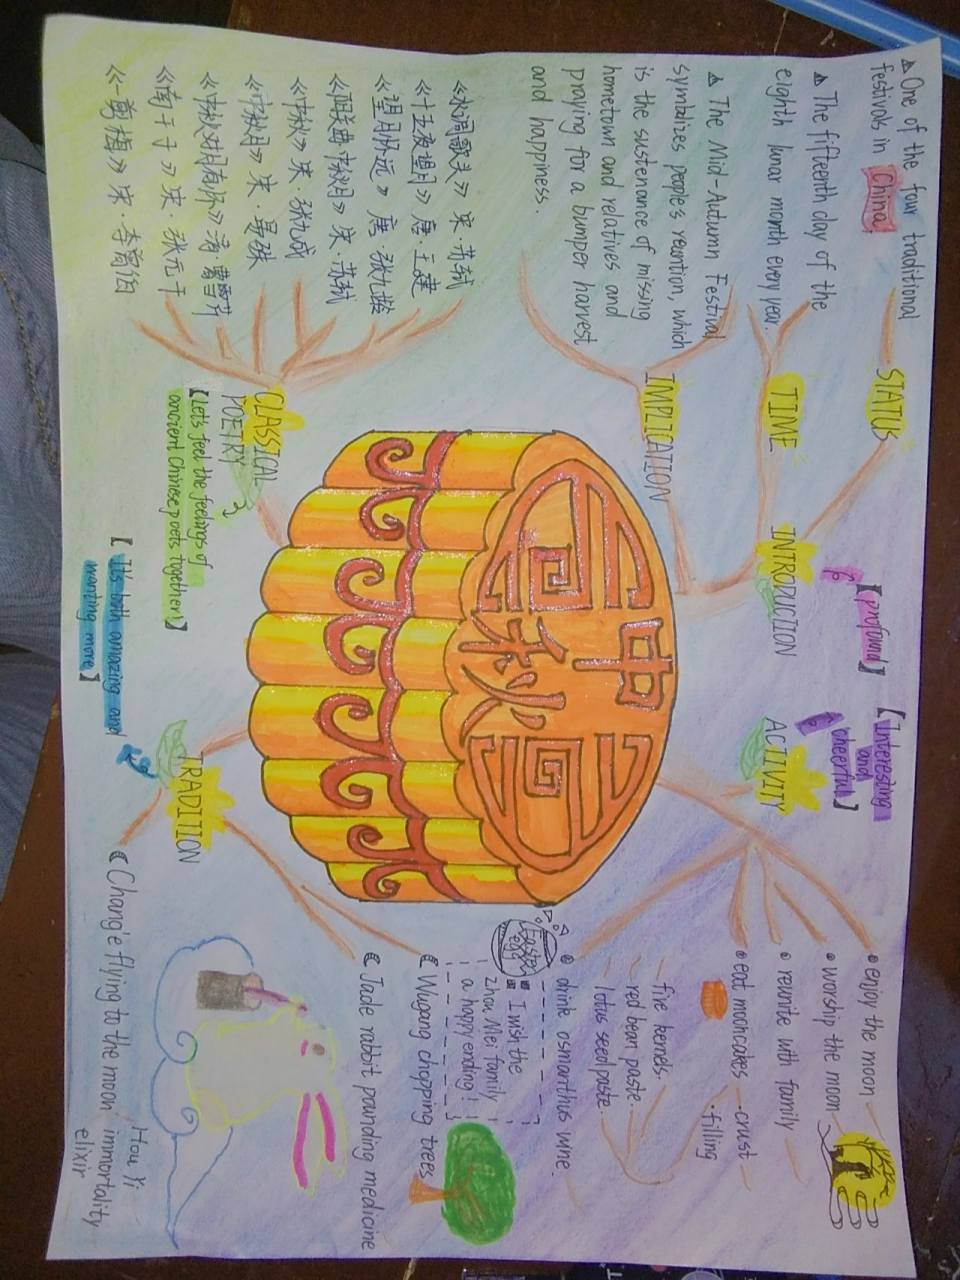 STATUS
▲ One of the four traditional
festivals in China
TIME
▲ The fifteenth day of the
eighth lunar month every year.
IMPLICATION
▲ The Mid-Autumn Festival
symbolizes people's reunition, which
is the sustenance of missing
hometown and relatives and
praying for a bumper harvest
and happiness.
INTRODUCTION
【profound】
【Interesting
and
cheerful】
ACTIVITY
• enjoy the moon
• worship the moon
• reunite with family
• eat mooncakes
crust
filling
five kernels
red bean paste
lotus seed paste
• drink osmanthus wine.
Easter
egg
I wish the
Zhou Mei family
a happy ending!
中
秋
CLASSICAL
POETRY
【Let's feel the feelings of
ancient Chinese poets together!】
《水调歌头》宋·苏轼
《十五夜望月》唐·王建
《望月怀远》唐·张九龄
《阳关曲·中秋月》宋·苏轼
《中秋》宋·张九成
《中秋月》宋·晏殊
《中秋对月有怀》清·曹雪芹
《南子》宋·张元干
《一剪梅》宋·李曾伯
【It's both amazing and
wanting more】
TRADITION
Wugang chopping trees
Jade rabbit pounding medicine
Chang'e flying to the moon
Hou Yi
immortality
elixir